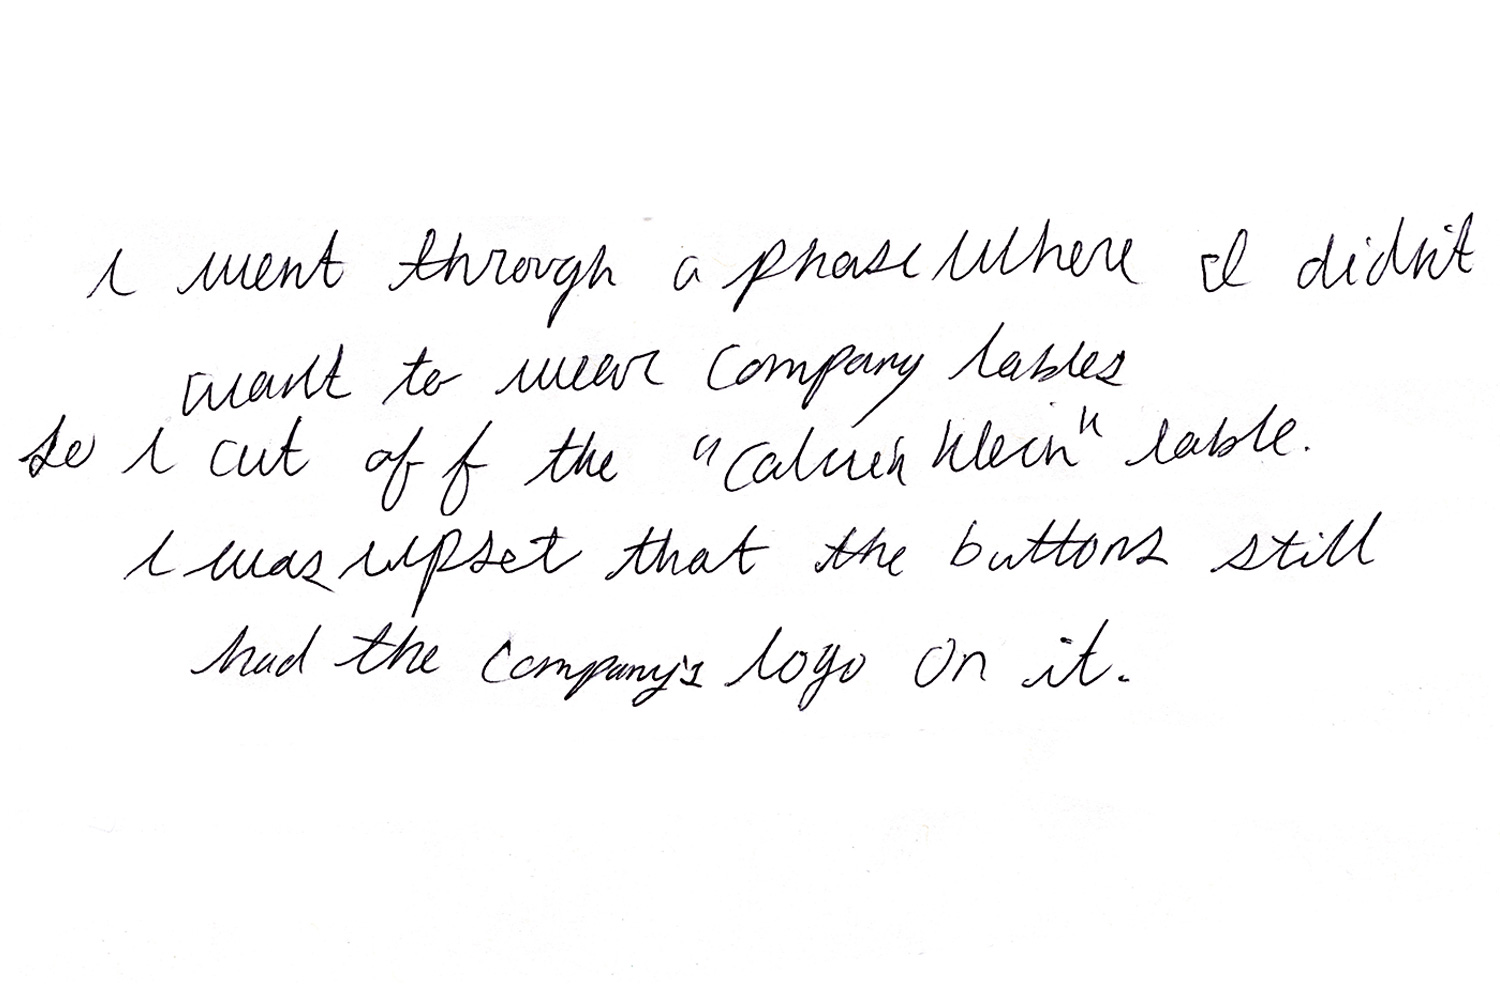 I went through a phase where I didn't
want to wear company lables
so I cut off the "Calvin Klein" lable.
I was upset that the buttons still
had the company's logo on it.